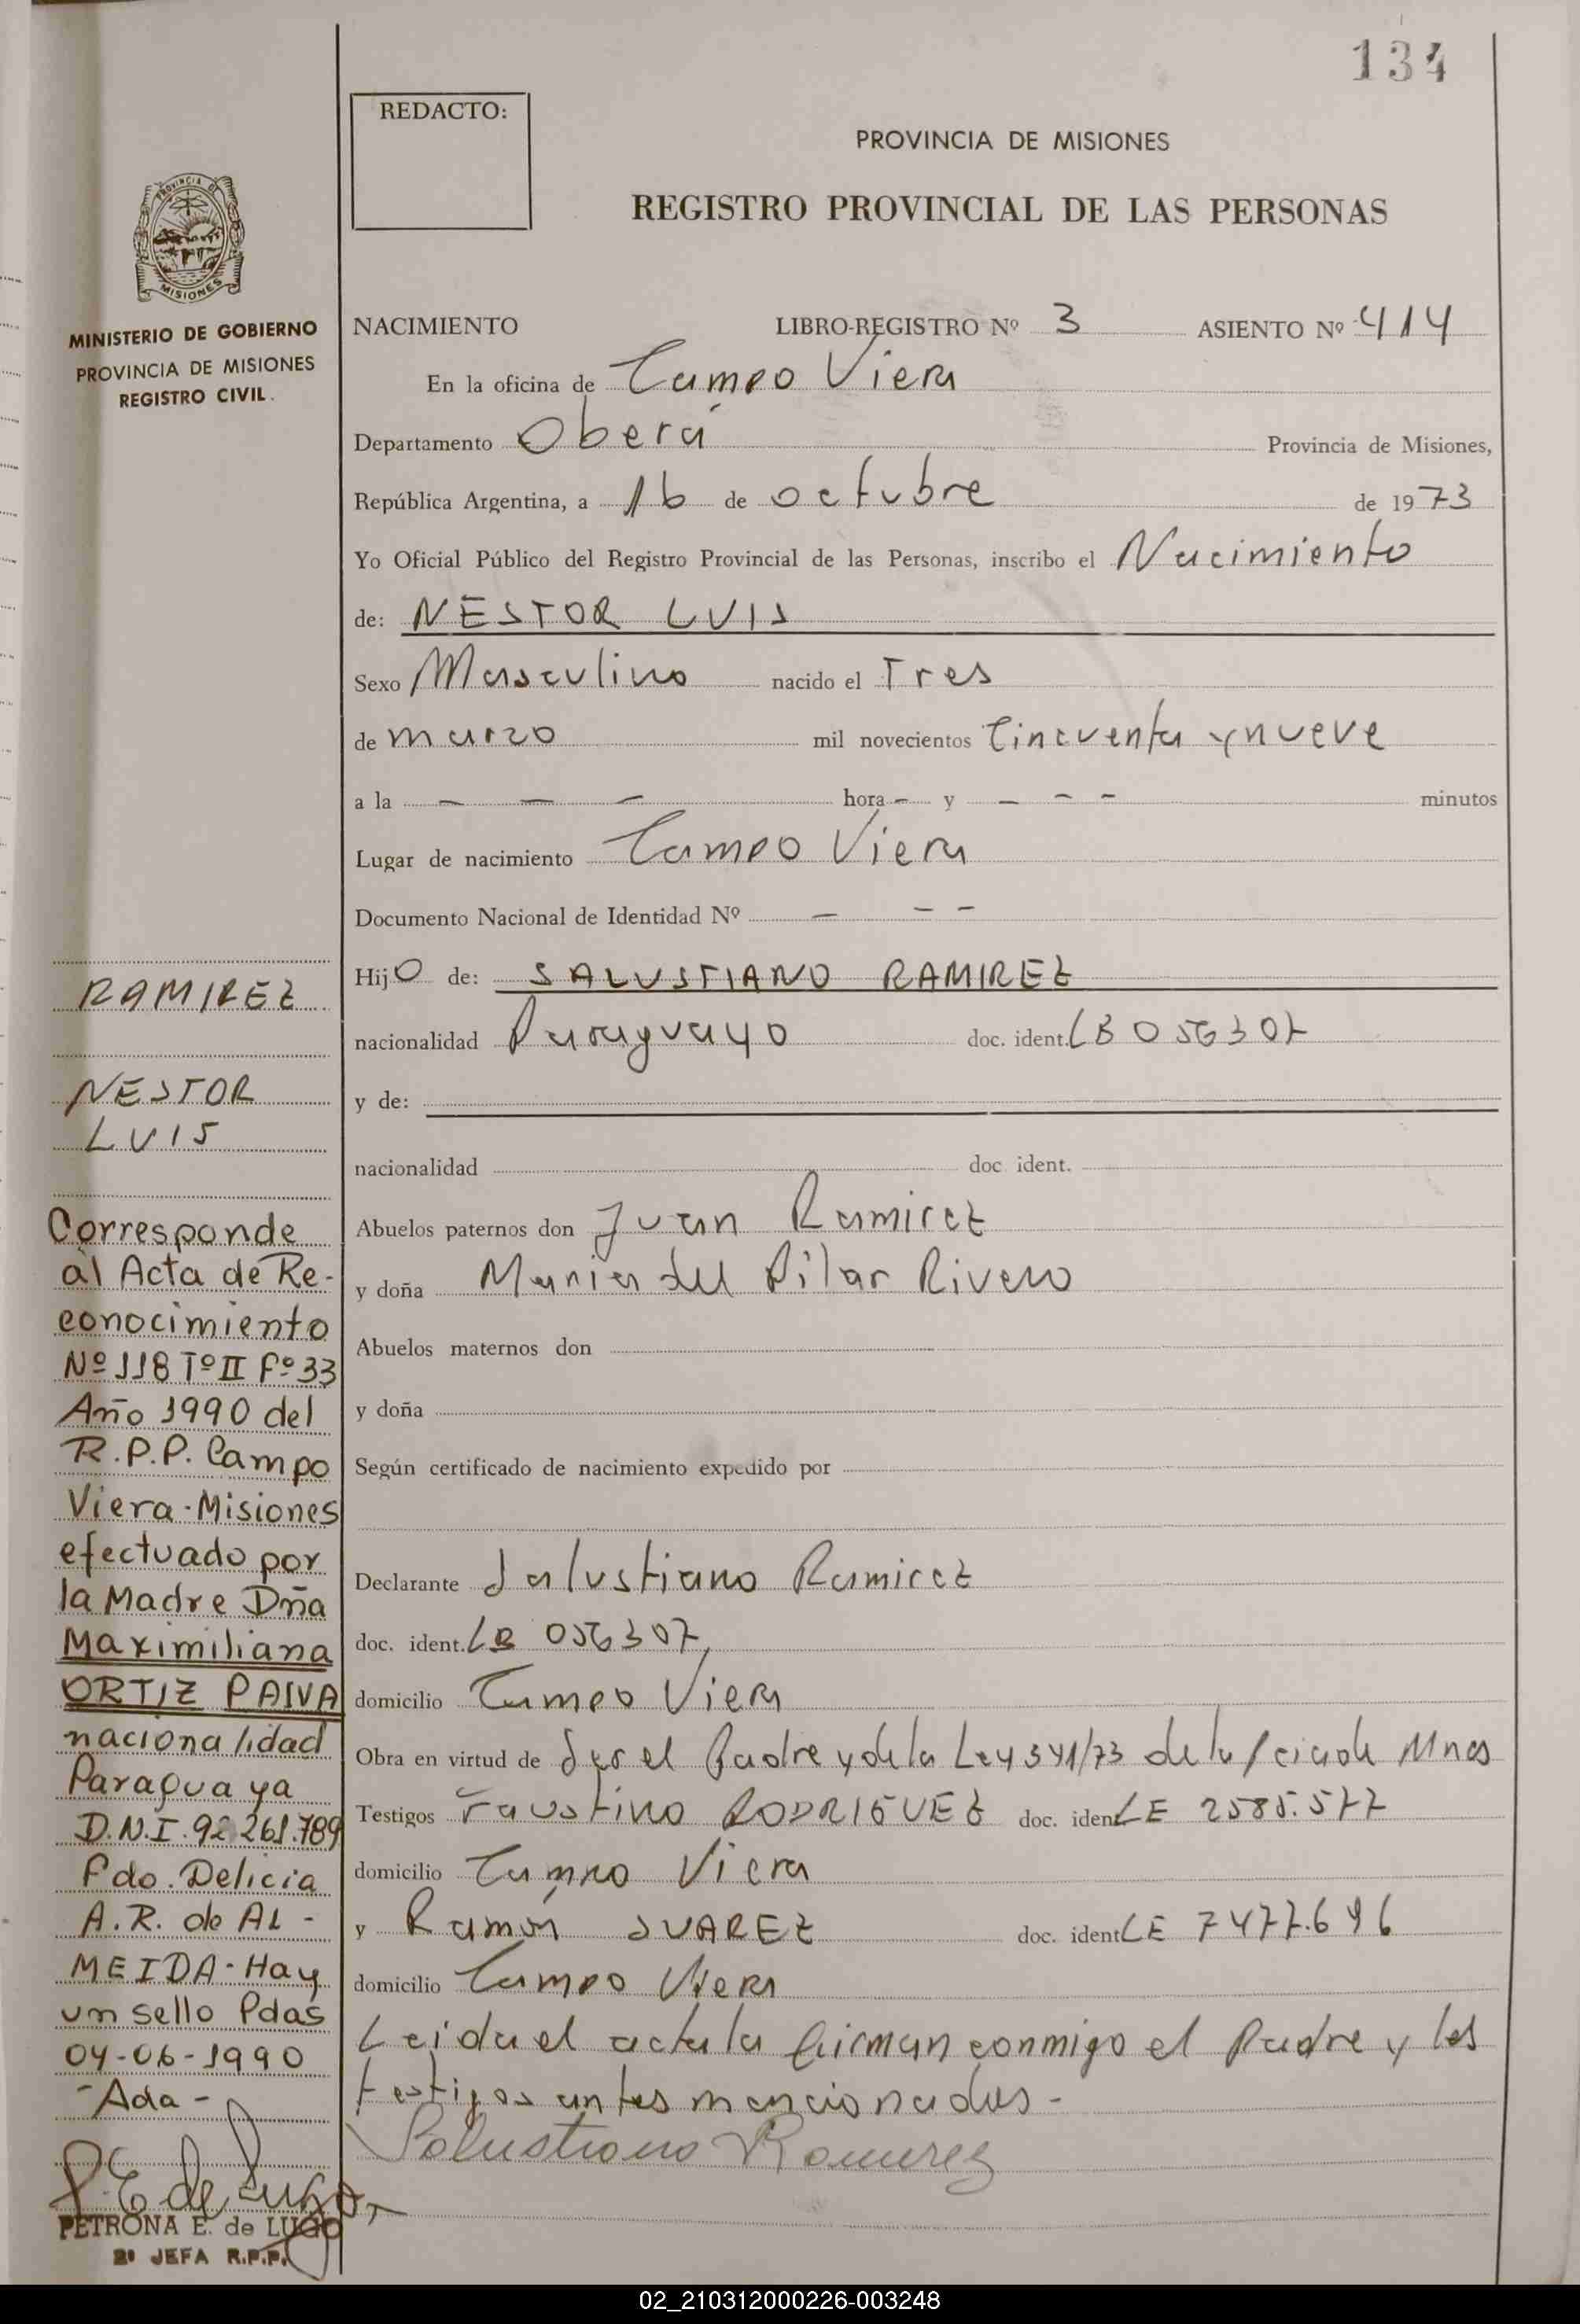 134
REDACTO:
PROVINCIA DE MISIONES
REGISTRO PROVINCIAL DE LAS PERSONAS
PROVINCIA DE
MISIONES
MINISTERIO DE GOBIERNO
PROVINCIA DE MISIONES
REGISTRO CIVIL.
NACIMIENTO LIBRO-REGISTRO Nº 3 ASIENTO Nº 414
En la oficina de Campo Viera
Departamento Oberá Provincia de Misiones,
República Argentina, a 16 de octubre de 1973
Yo Oficial Público del Registro Provincial de las Personas, inscribo el Nacimiento
de: NESTOR LUIS
Sexo Masculino nacido el Tres
de marzo mil novecientos Cincuenta y nueve
a la — — — hora - y — - - minutos
Lugar de nacimiento Campo Viera
Documento Nacional de Identidad Nº — - -
Hijo de: SALUSTIANO RAMIREZ
nacionalidad Paraguayo doc. ident. LB 056307
y de:
nacionalidad doc ident.
Abuelos paternos don Juan Ramirez
y doña Maria del Pilar Rivero
Abuelos maternos don
y doña
Según certificado de nacimiento expedido por
Declarante Salustiano Ramirez
doc. ident. LB 056307,
domicilio Campo Viera
Obra en virtud de Ser el Padre y de la Ley 341/73 de la Mnes
Testigos Faustino RODRIGUEZ doc. iden LE 2585.577
domicilio Campo Viera
y Ramón SUAREZ doc. ident LE 7477.696
domicilio Campo Viera
Leida el acta la firman conmigo el Padre y los
testigos antes mencionados -
Salustiano Ramirez
RAMIREZ
NESTOR
LUIS
Corresponde
al Acta de Re-
conocimiento
Nº 118 Tº II Fº 33
Año 1990 del
R.P.P. Campo
Viera - Misiones
efectuado por
la Madre Dña
Maximiliana
ORTIZ PAIVA
nacionalidad
Paraguaya
D.N.I. 92 261.789
Fdo. Delicia
A.R. de AL-
MEIDA - Hay
un sello Pdas
04-06-1990
- Ada -
P. E. de Lugo
PETRONA E. de LUGO
2ª JEFA R.P.P.
02_210312000226-003248